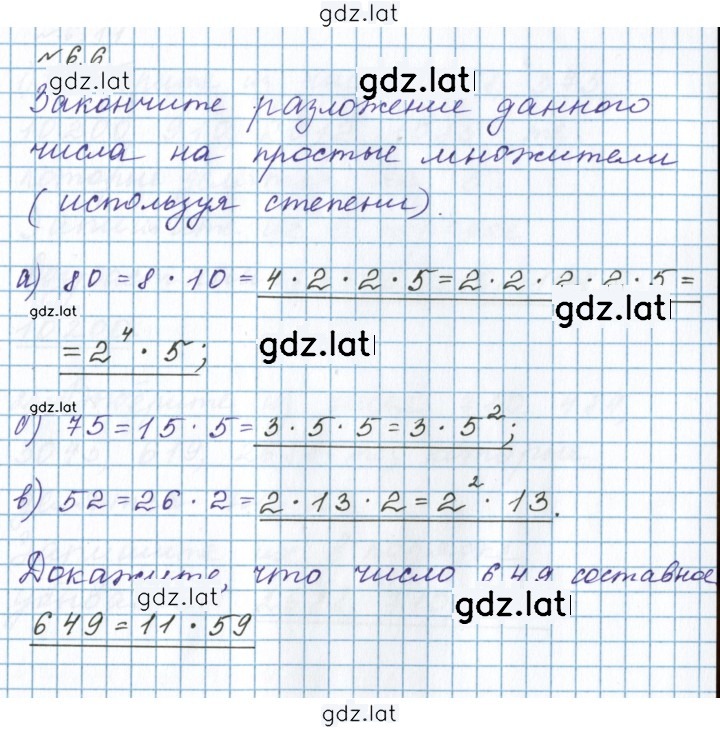 gdz.lat
№6.6
gdz.lat gdz.lat
Закончите разложение данного
числа на простые множители
(используя степени).
а) 80 = 8 · 10 = 4 · 2 · 2 · 5 = 2 · 2 · 2 · 2 · 5 =
gdz.lat gdz.lat
= 2⁴ · 5; gdz.lat
gdz.lat
б) 75 = 15 · 5 = 3 · 5 · 5 = 3 · 5²;
в) 52 = 26 · 2 = 2 · 13 · 2 = 2² · 13.
Докажите, что число 649 составное
gdz.lat gdz.lat
649 = 11 · 59
gdz.lat